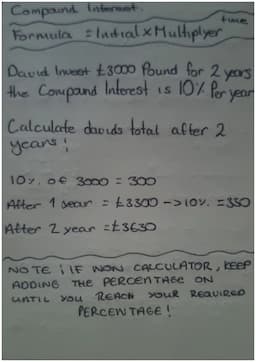 Compound Interest.
time
Formula = Initial x Multiplyer
David Invest £3000 Pound for 2 years
the Compound Interest is 10% Per year
Calculate davids total after 2
years!
10% of 3000 = 300
After 1 year = £3300 -> 10% = 330
After 2 year = £3630
NOTE ! IF NON CALCULATOR, KEEP
ADDING THE PERCENTAGE ON
UNTIL YOU REACH YOUR REQUIRED
PERCENTAGE!